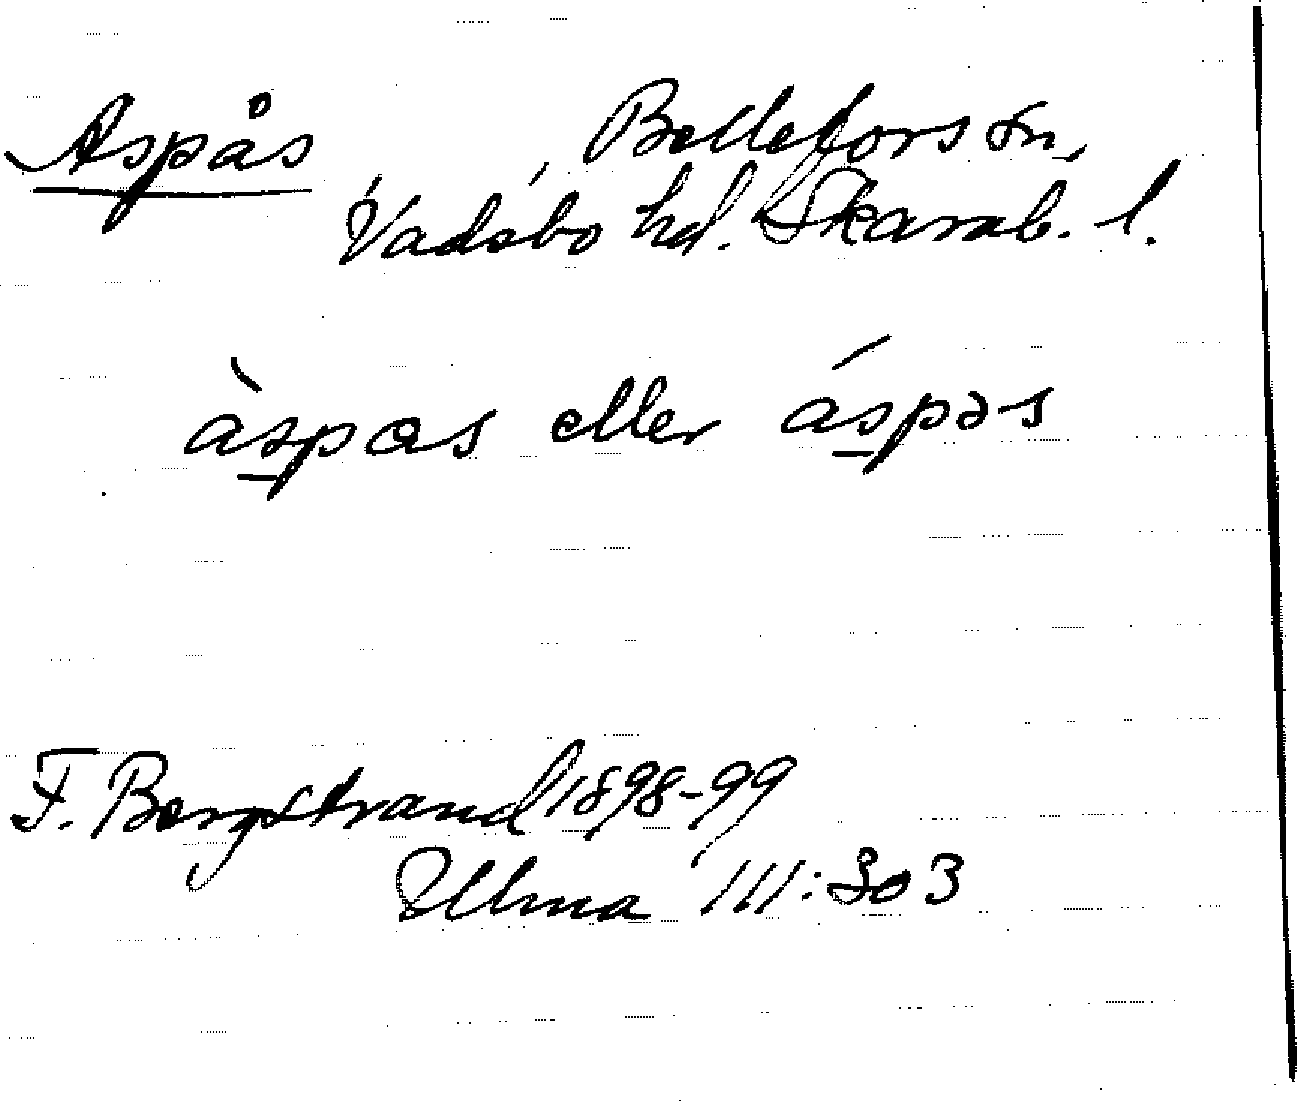 Aspås Bellefors sn,
Vadsbo hd. Skarab. l.
àspas eller áspəs
F. Bergstrand 1898-99
Ullma 111:303